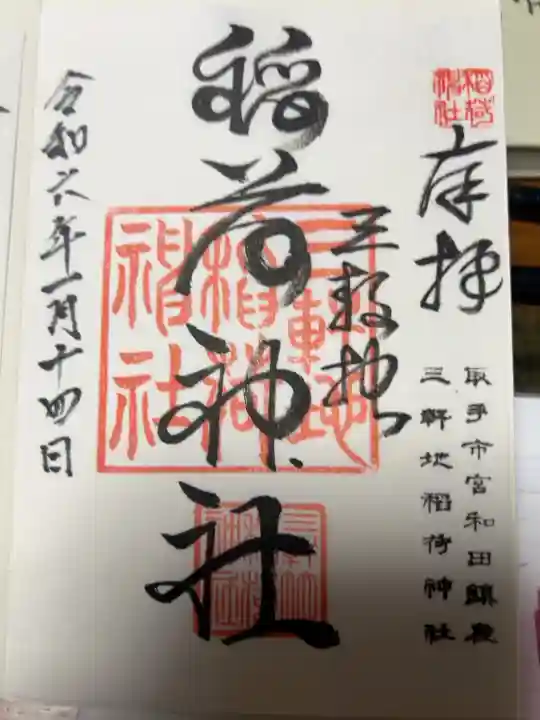 稲荷神社
奉拝
取手市宮和田鎮座
三軒地稲荷神社
三軒地
稲荷神社
三軒地
稲荷
神社
令和六年一月十四日